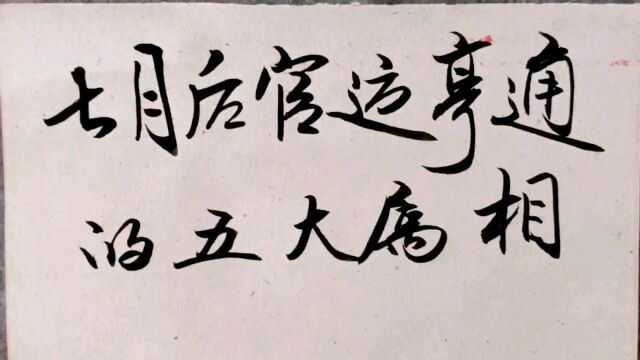 七月后官运亨通
的五大属相